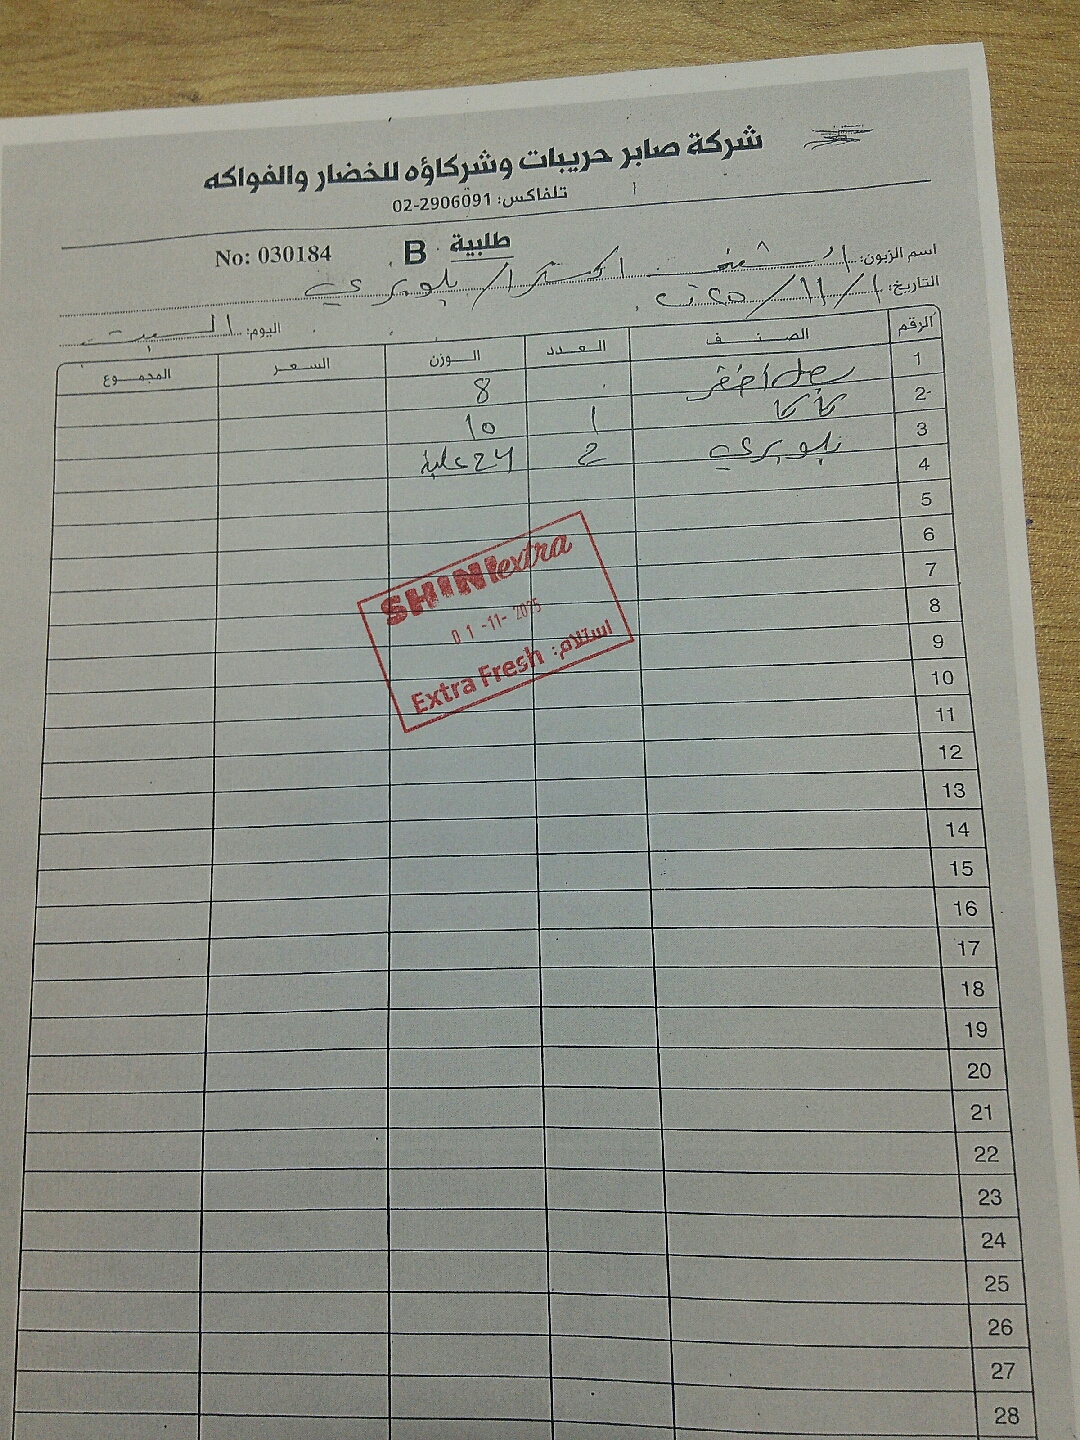 شركة صابر حريبات وشركاؤه للخضار والفواكه
تلفاكس: 02-2906091
طلبية B No: 030184
اسم الزبون: الشني اكسترا / بلوبري
التاريخ: ١ / ١١ / ٢٠٢٥
اليوم: السبت
الرقم الصنف العدد الوزن السعر المجموع
1 بصل أخضر 8
2 كاكا 1 10
3 بلوبري 2 24 علبة
4
5
6
7
8
9
10
11
12
13
14
15
16
17
18
19
20
21
22
23
24
25
26
27
28
SHINI extra
01-11-2025
Extra Fresh استلام: